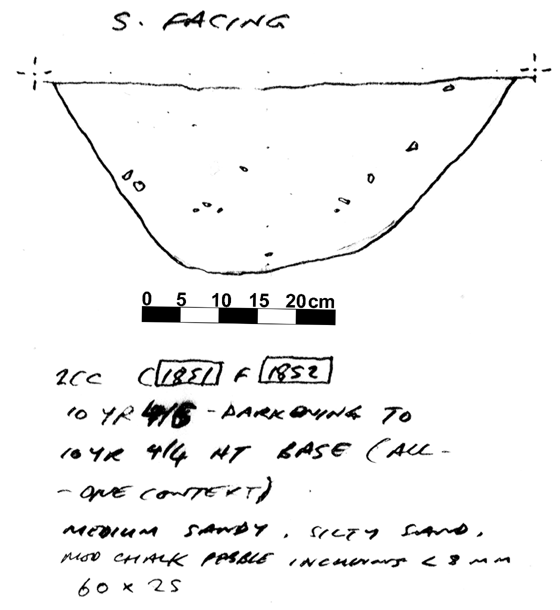 S. FACING
0 5 10 15 20cm
C 1851 F 1852
10 YR 4/6 - DARKENING TO
10 YR 4/4 AT BASE (ALL -
- ONE CONTEXT)
MEDIUM SANDY, SILTY SAND,
MOD CHALK PEBBLE INCLUSIONS < 8 MM
60 x 25